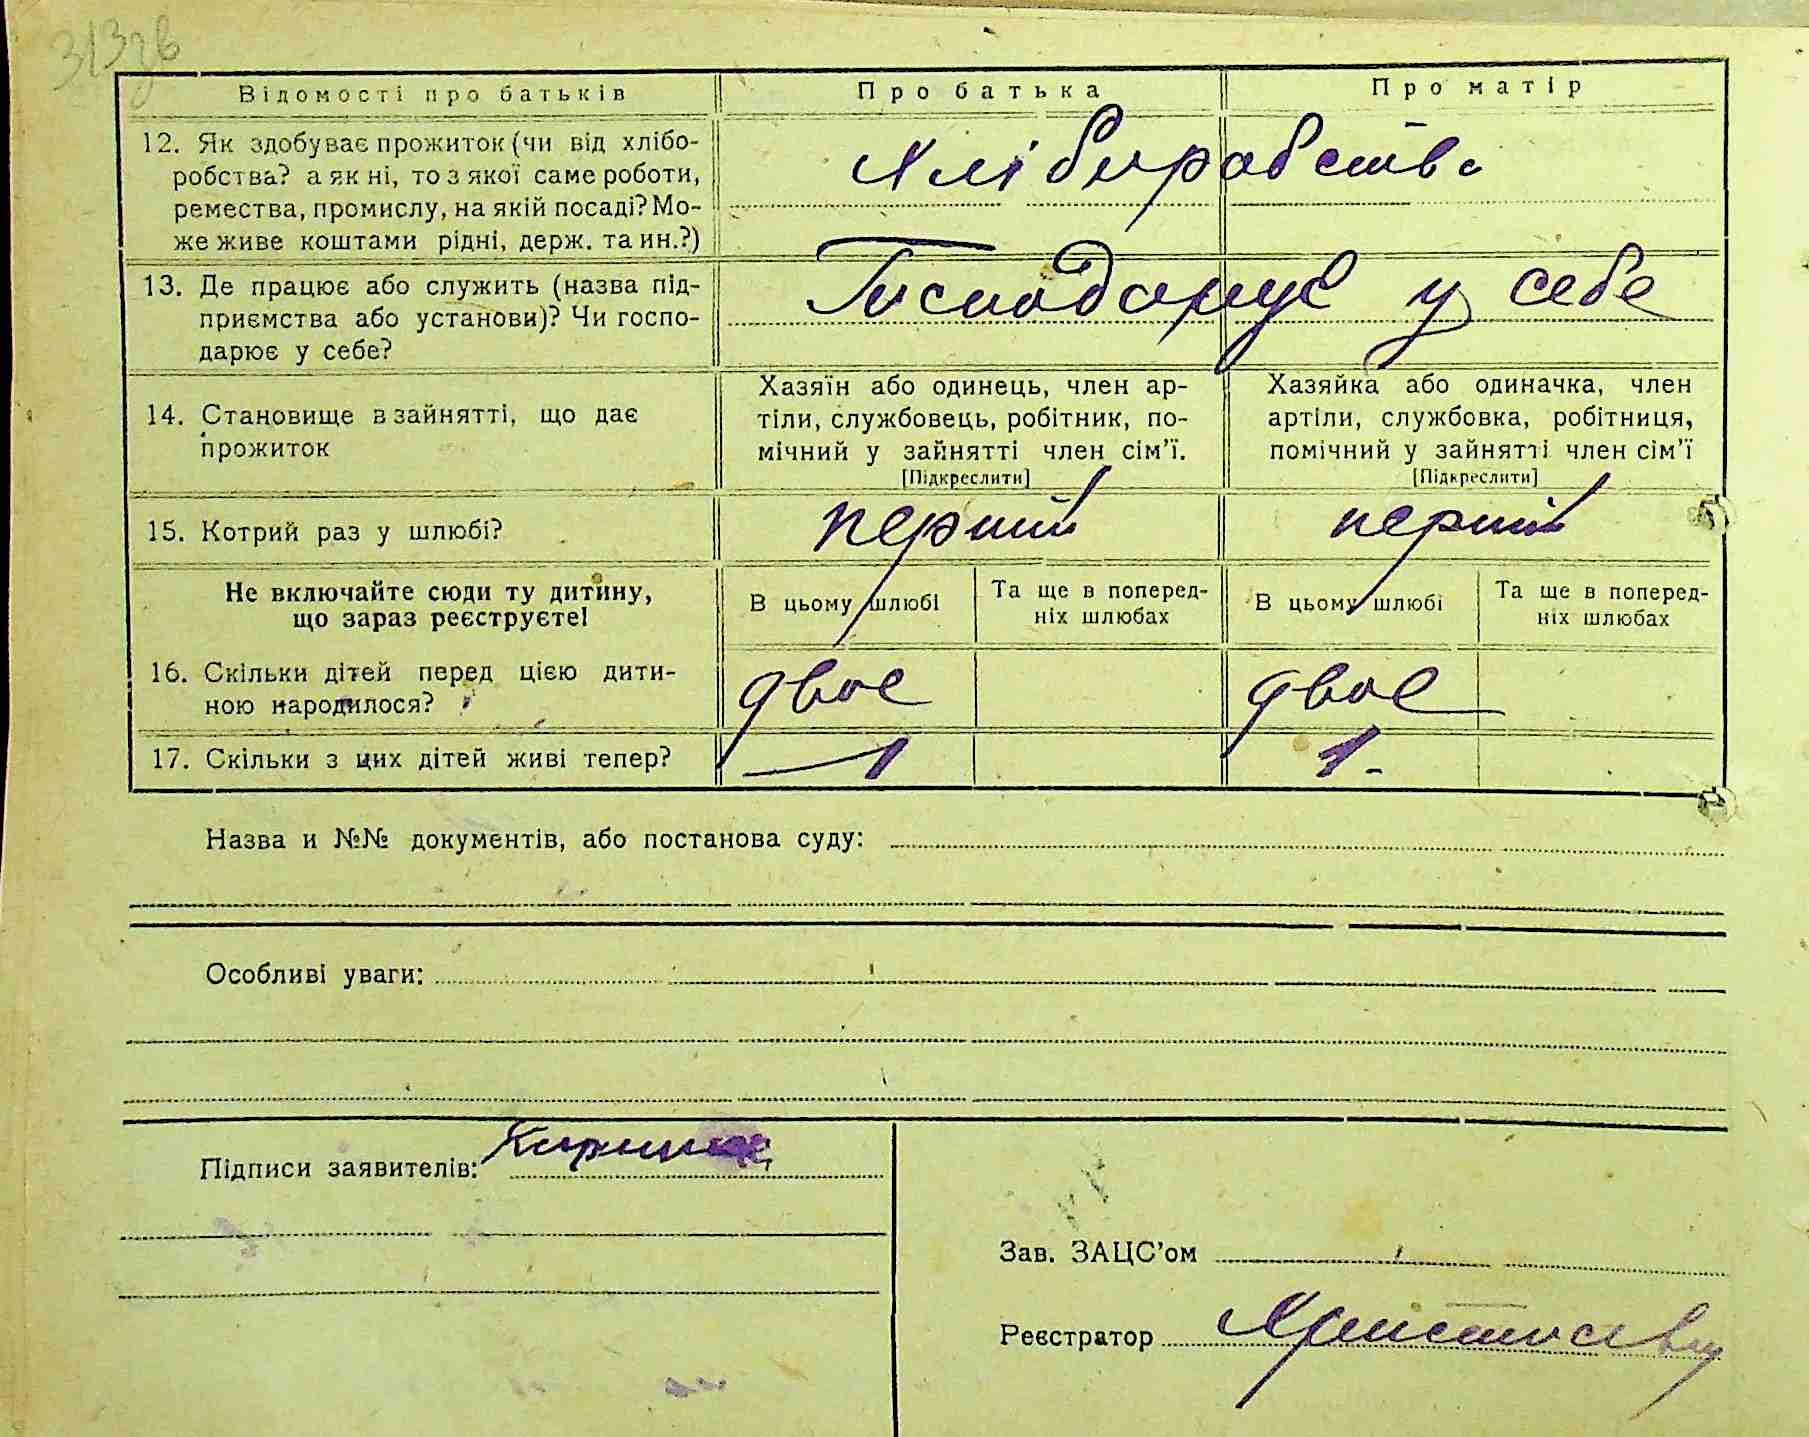 313зв
Відомості про батьків
Про батька
Про матір
12. Як здобуває прожиток (чи від хлібо-
робства? а як ні, то з якої саме роботи,
ремества, промислу, на якій посаді? Мо-
же живе коштами рідні, держ. та ин.?)
хліборобство
13. Де працює або служить (назва під-
приємства або установи)? Чи госпо-
дарює у себе?
Господарує у себе
14. Становище в зайнятті, що дає
прожиток
Хазяїн або одинець, член ар-
тіли, службовець, робітник, по-
мічний у зайнятті член сім'ї.
[Підкреслити]
Хазяйка або одиначка, член
артіли, службовка, робітниця,
помічний у зайнятті член сім'ї
[Підкреслити]
15. Котрий раз у шлюбі?
перший
перший
Не включайте сюди ту дитину,
що зараз реєструєте!
В цьому шлюбі
Та ще в поперед-
ніх шлюбах
В цьому шлюбі
Та ще в поперед-
ніх шлюбах
16. Скільки дітей перед цією дити-
ною народилося?
двоє
двоє
17. Скільки з цих дітей живі тепер?
1
1
Назва и №№ документів, або постанова суду:
Особливі уваги:
Підписи заявителів:
Зав. ЗАЦС'ом
Реєстратор